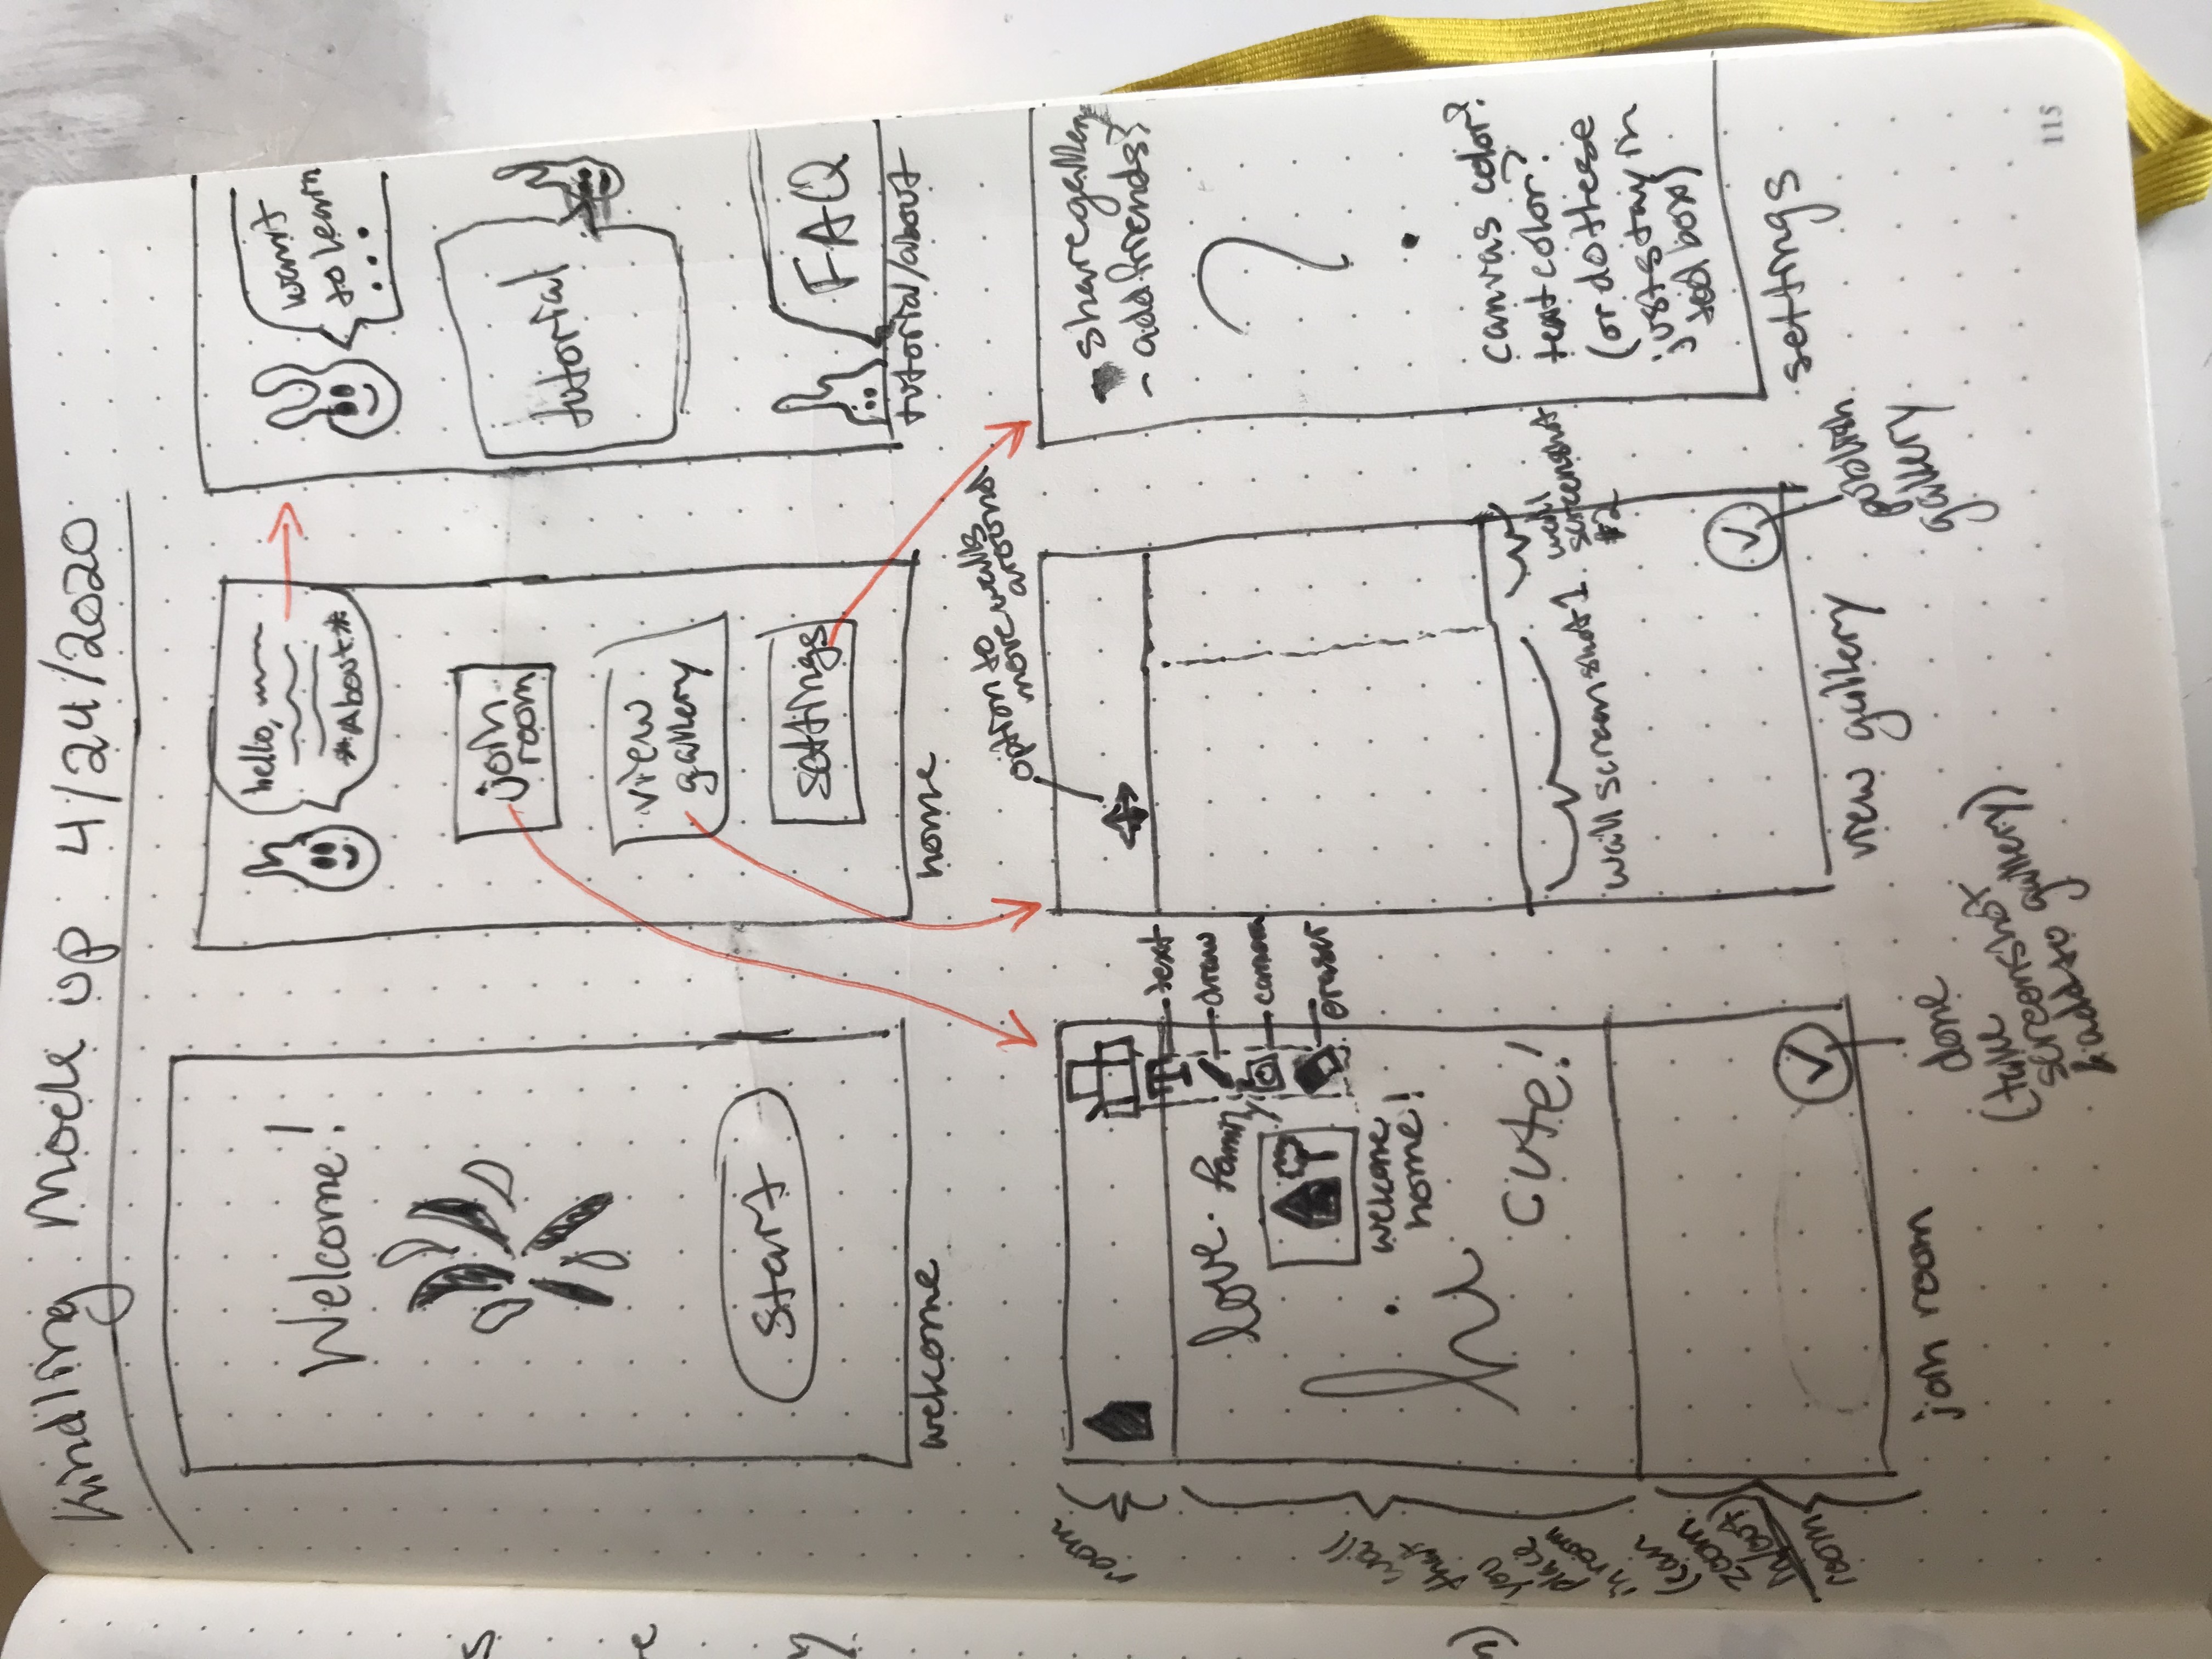 Kindling Mock up 4/24/2020
Welcome!
Start
welcome
hello,
*About*
join
room
view
gallery
settings
home
want
to learn
...
tutorial
FAQ
tutorial/about
room
wall
that
you
place
in room
(can
zoom
in/out)
room
love
family
welcome
home!
hi
cute!
T
text
draw
camera
eraser
join room
done
(take
screenshot
& add to gallery)
option to
move walls
around
wall screenshot 1
wall
screenshot
#2
view gallery
publish
gallery
share gallery
- add friends?
?
canvas color?
text color?
(or do these
just stay in
tool box)
settings
115
s
e
y
n)